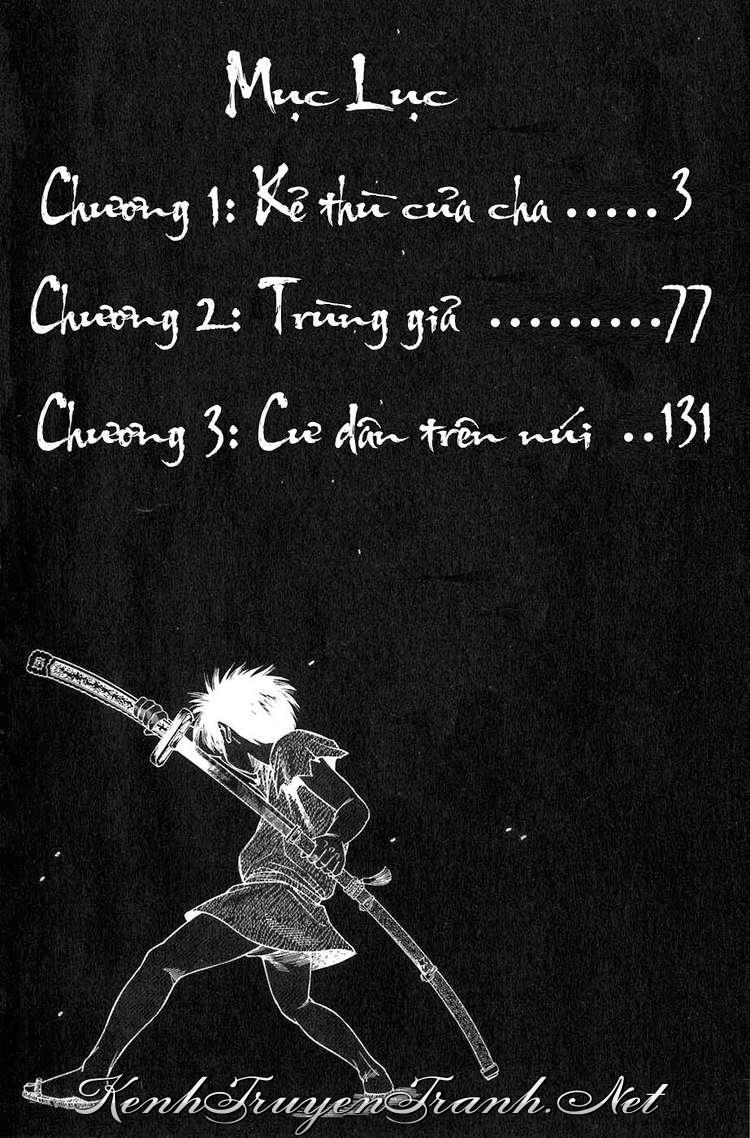 Mục Lục
Chương 1: Kẻ thù của cha ..... 3
Chương 2: Trùng giả .........77
Chương 3: Cư dân trên núi ..131
KenhTruyenTranh.Net